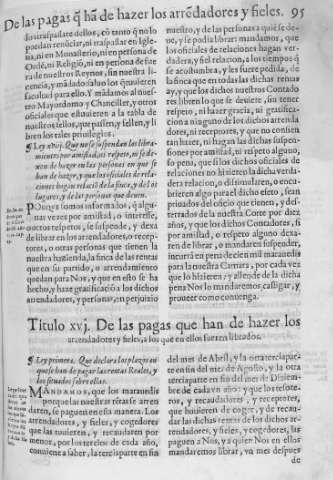 De las pagas q̃ hã de hazer los arrẽdadores y fieles. 95
do ni traspassarse dellos, cõ tanto q̃ no lo
puedan renũciar, ni traspassar en Iglesia,
ni en Monasterio, ni en persona de
Ordẽ, ni Religiõ, ni en persona de fuera
de nuestros Reynos, sin nuestra licencia,
y mãdado, saluo los q̃ tuuieren
facultad para ello. Y mãdamos al nuestro
Mayordomo y Chanciller, y otros
oficiales que estuuieren a la tabla de
nuestros sellos, que passen, y sellen, y libren
los tales priuilegios.
¶ Ley xvij. Que no se suspendan los libramientos
por amistad, ni respeto, ni se dexen
de hazer en las personas en que se
han de hazer, y que los oficiales de relaciones
hagan relació de la finca, y de los
lugares, y de las personas que deuen.
PORQVE somos informados, q̃ algunas
vezes por amistad, o interesse,
o otros respetos, se suspende, y dexa
de librar en los arrendadores, o recetores,
o otras personas que tienen la
nuestra haziẽda, la finca de las rentas
que en su partido, y arrendamiento
quedan para Nos, y en esto se ha
hecho, y haze gratificaciõ a los dichos
arrendadores, y personas, en perjuizio
nuestro, y de las personas a quiẽ se deue,
y se podia librar: mandamos, que
los oficiales de relaciones hagan verdadera,
y fiel relacion, a los tiempos q̃
se acostumbra, y les fuere pedida, de
la finca que en todas las dichas rentas
huuiere, y que los nuestros Contadores
libren lo que se deuiere, sin tener
respeto, ni hazer gracia, ni gratificacion
a ninguno de los dichos arrendadores,
ni recetores, y que no consientan
hazer, ni hagan las dichas suspensiones
por amistad, ni respeto alguno,
so pena, que si los dichos oficiales de
relaciones no hizieren la dicha verdadera
relacion, o dissimularen, o encubrieren
algo para el dicho efeto, sean
priuados del oficio que tienen, y desterrados
de la nuestra Corte por diez
años, y que los dichos Contadores, si
por amistad, o respeto alguno dexaren
de librar, o mandaren suspender,
incurrã en pena de cien mil marauedis
para la nuestra Camara, por cada vez
que lo hizieren: y allende de la dicha
pena Nos lo mandaremos castigar, y
proueer como conuenga.
Titulo xvj. De las pagas que han de hazer los
arrendadores y fieles, a los que en ellos fueren librados.
¶ Ley primera. Que declara los plazos en
que se han de pagar las rentas Reales, y
los situados sobre ellas.
MANDAMOS, que los marauedis
porque las nuestras rẽtas se arrendaren,
se paguen en esta manera. Los
arrendadores, y fieles, y cogedores
que las tuuieren, y recaudaren por
menor, por los tercios de cada año,
conuiene a saber, la tercia parte en fin
del mes de Abril, y la otra tercia parte
en fin del mes de Agosto, y la otra
tercia parte en fin del mes de Diziembre
de cada vn año: y que los tesoreros,
y recaudadores, y recetores,
que huuieren de coger, y de recaudar
las dichas rentas de los dichos arrendadores,
y fieles, y cogedores, las
paguen a Nos, y a quien Nos en ellos
mandaremos librar, vn mes despues
de